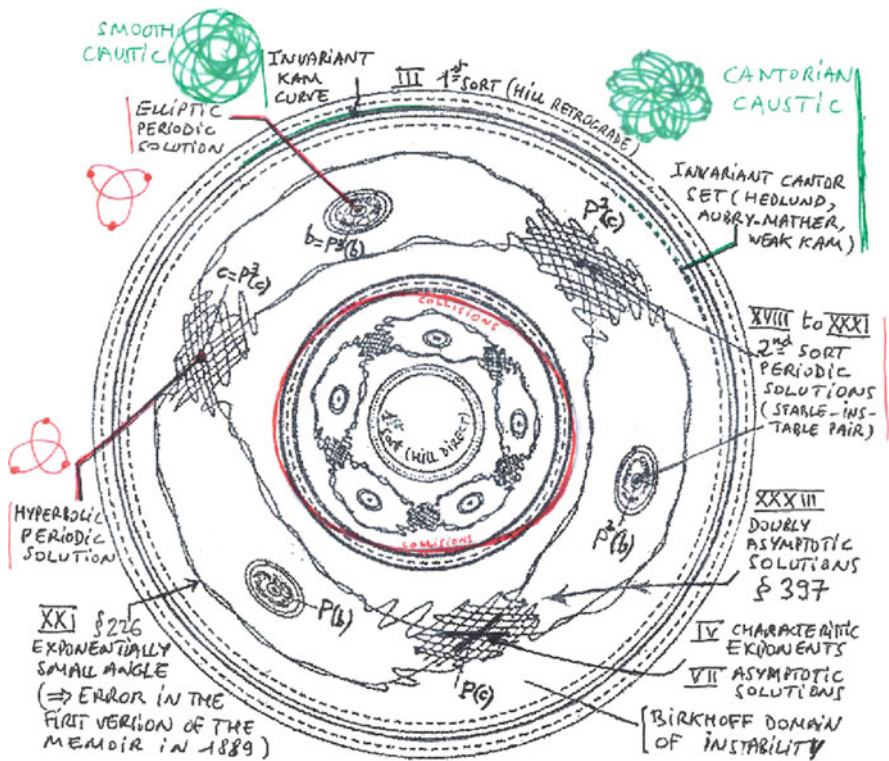 SMOOTH
CAUSTIC
INVARIANT
KAM
CURVE
III 1st SORT (HILL RETROGRADE)
CANTORIAN
CAUSTIC
ELLIPTIC
PERIODIC
SOLUTION
INVARIANT CANTOR
SET (HEDLUND,
AUBRY-MATHER,
WEAK KAM)
b=P³(b)
P²(c)
c=P³(c)
COLLISIONS
XVIII to XXXI
2nd SORT
PERIODIC
SOLUTIONS
(STABLE-INS-
TABLE PAIR)
1st
SORT (HILL DIRECT)
HYPERBOLIC
PERIODIC
SOLUTION
P²(b)
COLLISIONS
XXXIII
DOUBLY
ASYMPTOTIC
SOLUTIONS
§ 397
P(b)
XXI § 226
EXPONENTIALLY
SMALL ANGLE
(⇒ ERROR IN THE
FIRST VERSION OF THE
MEMOIR IN 1889)
P(c)
IV CHARACTERISTIC
EXPONENTS
VII ASYMPTOTIC
SOLUTIONS
BIRKHOFF DOMAIN
OF INSTABILITY